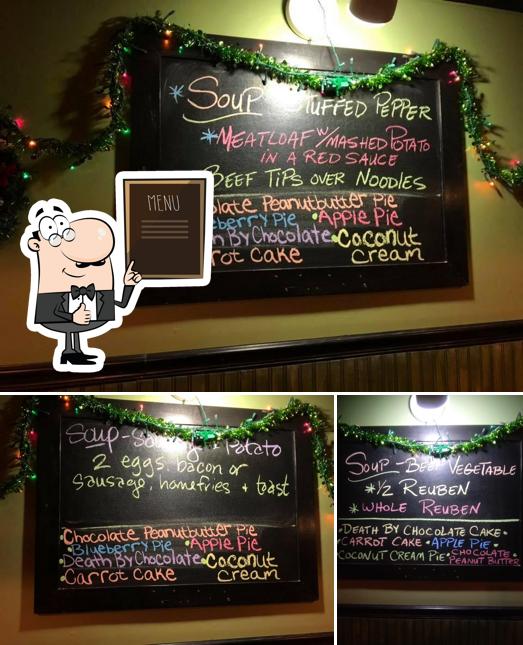 * Soup Stuffed Pepper
* Meatloaf w/Mashed Potato
in a Red Sauce
Beef Tips over Noodles
MENU
olate Peanutbutter Pie
eberry Pie • Apple Pie
h By Chocolate • Coconut
rot Cake Cream
Soup - Potato
2 eggs, bacon or
Sausage, homefries + toast
Chocolate Peanutbutter Pie
• Blueberry Pie • Apple Pie
• Death By Chocolate • Coconut
• Carrot Cake Cream
Soup - Beef Vegetable
* 1/2 Reuben
* Whole Reuben
• Death By Chocolate Cake •
• Carrot Cake • Apple Pie •
Coconut Cream Pie • Chocolate
Peanut Butter